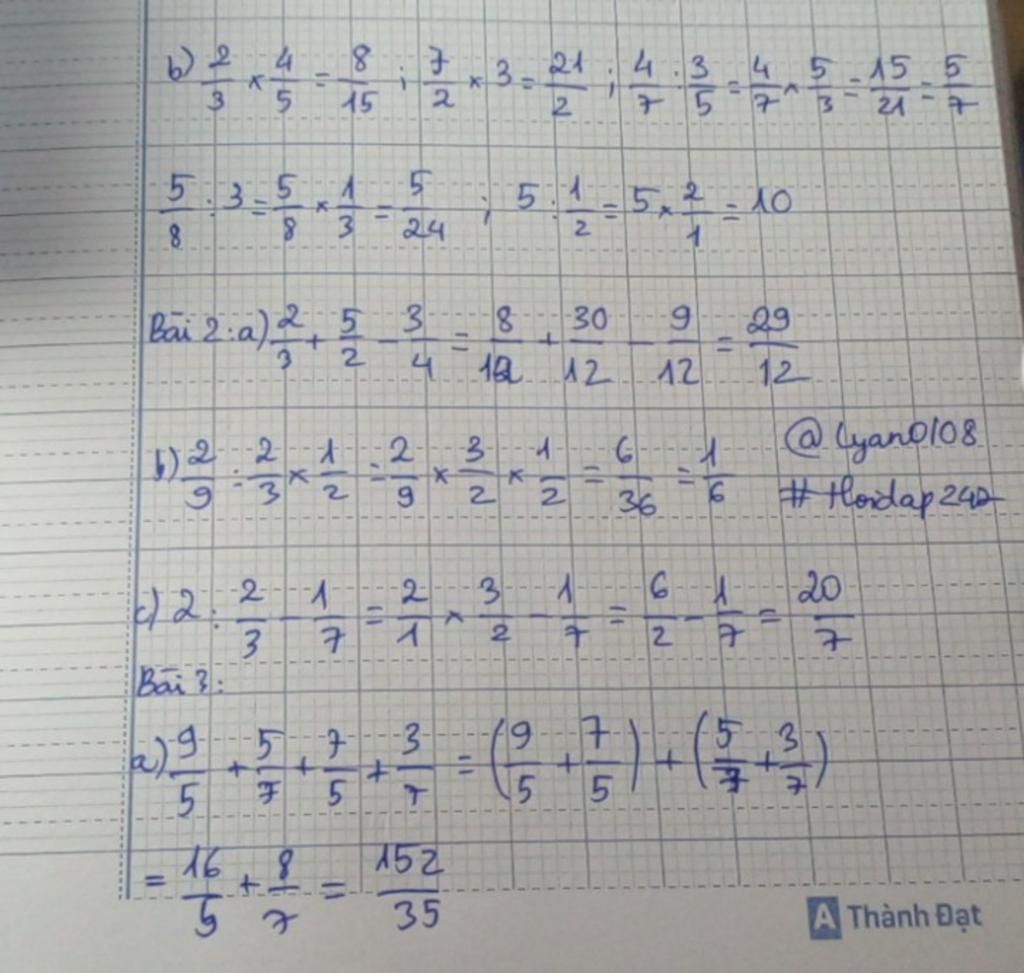 b) 2/3 × 4/5 = 8/15 ; 7/2 × 3 = 21/2 ; 4/7 : 3/5 = 4/7 × 5/3 = 15/21 = 5/7
5/8 : 3 = 5/8 × 1/3 = 5/24 ; 5 : 1/2 = 5 × 2/1 = 10
Bài 2: a) 2/3 + 5/2 - 3/4 = 8/12 + 30/12 - 9/12 = 29/12
b) 2/9 : 2/3 × 1/2 = 2/9 × 3/2 × 1/2 = 6/36 = 1/6
@ lyan0108
# Hoidap247
c) 2 : 2/3 - 1/7 = 2/1 × 3/2 - 1/7 = 6/2 - 1/7 = 20/7
Bài 3:
a) 9/5 + 5/7 + 7/5 + 3/7 = (9/5 + 7/5) + (5/7 + 3/7)
= 16/5 + 8/7 = 152/35
A Thành Đạt